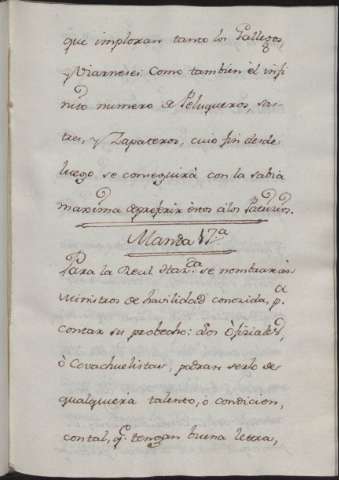 que imploran tanto los Gallegos,
y Viarneses como tambien el infi-
nito numero de Peluqueros, sas-
tres, y Zapateros, cuio fin desde
luego se conseguirá con la sabia
maxima de preferir éstos á los Patricios.
Manda 17.ª
Para la Real Haz.da se nombrarán
Ministros de havilidad conozida, p.ª
contar su probecho: á los ôfiziales,
ò Covachuelistas, podran serlo de
qualquiera talento, o condicion,
contal, q.e tengan buena letra,